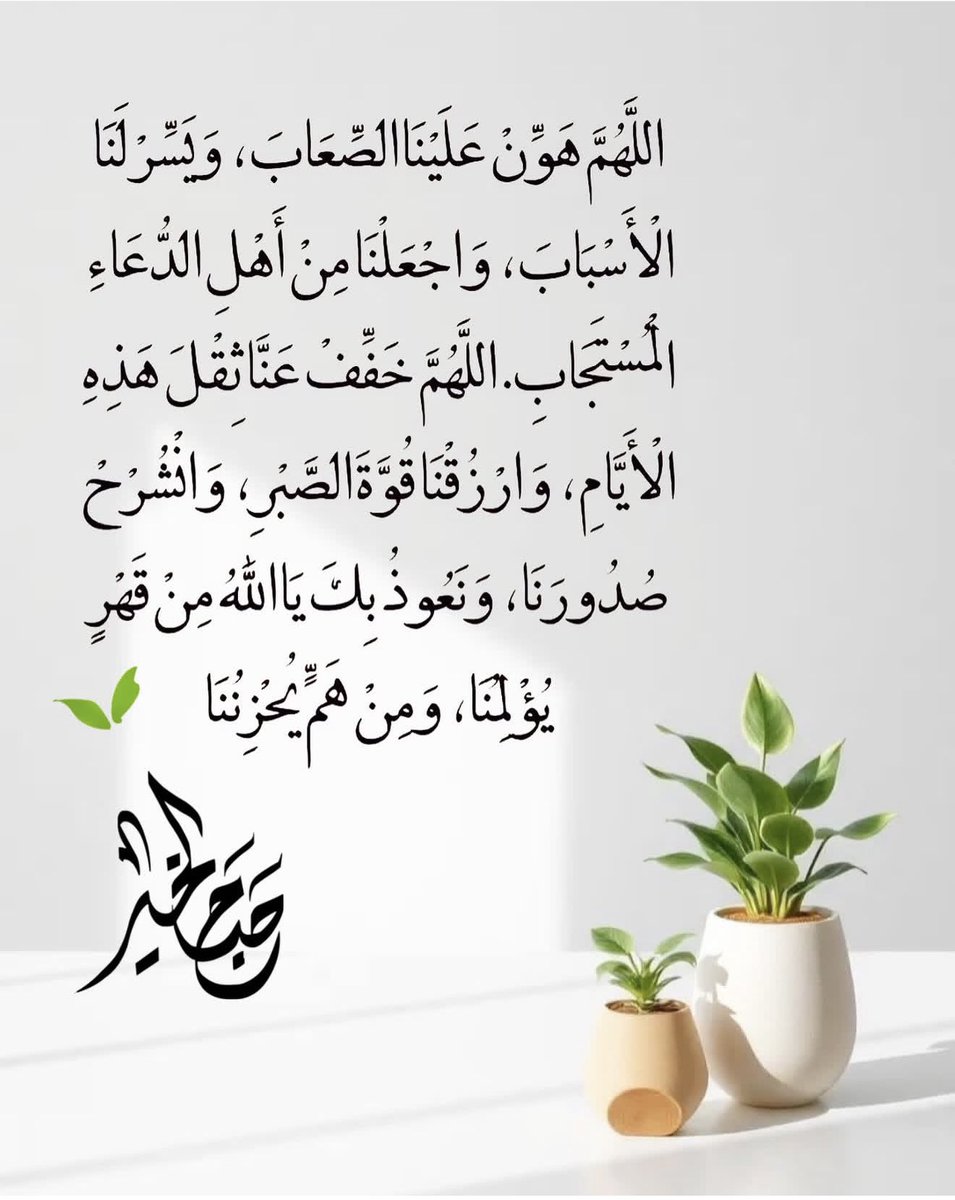 اللَّهُمَّ هَوِّنْ عَلَيْنَا الصِّعَابَ، وَيَسِّرْ لَنَا
الْأَسْبَابَ، وَاجْعَلْنَا مِنْ أَهْلِ الدُّعَاءِ
الْمُسْتَجَابِ. اللَّهُمَّ خَفِّفْ عَنَّا ثِقْلَ هَذِهِ
الْأَيَّامِ، وَارْزُقْنَا قُوَّةَ الصَّبْرِ، وَانْشُرْحْ
صُدُورَنَا، وَنَعُوذُ بِكَ يَا اللهُ مِنْ قَهْرٍ
يُؤْلِمُنَا، وَمِنْ هَمٍّ يُحْزِنُنَا
صباح الخير